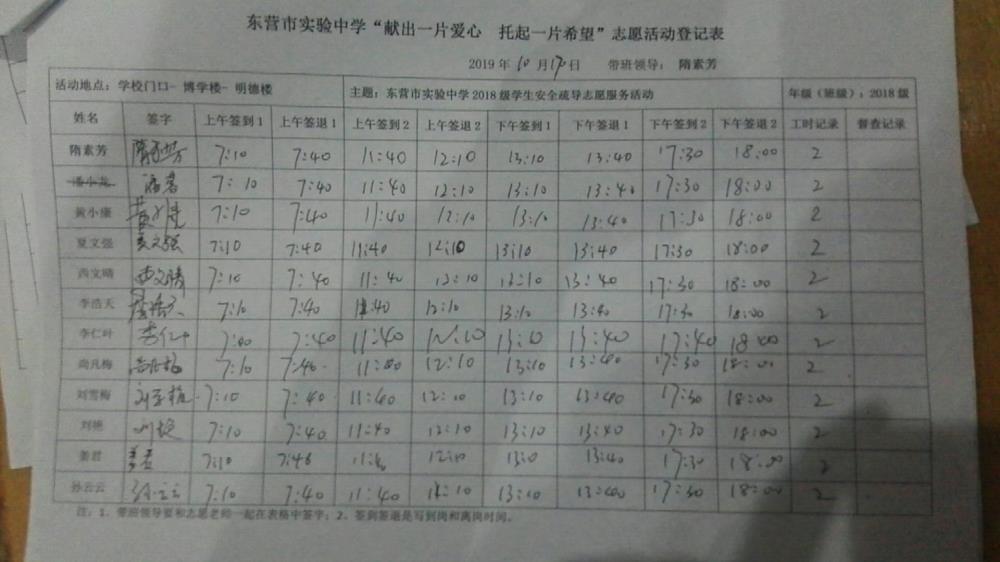 东营市实验中学“献出一片爱心 托起一片希望”志愿活动登记表
2019年10月17日 带班领导：隋素芳
活动地点：学校门口- 博学楼- 明德楼 主题：东营市实验中学2018级学生安全疏导志愿服务活动 年级（班级）：2018级
姓名 签字 上午签到1 上午签退1 上午签到2 上午签退2 下午签到1 下午签退1 下午签到2 下午签退2 工时记录 督查记录
隋素芳 隋素芳 7:10 7:40 11:40 12:10 13:10 13:40 17:30 18:00 2
潘小龙 7:10 7:40 11:40 12:10 13:10 13:40 17:30 18:00 2
黄小康 7:10 7:40 11:40 12:10 13:10 13:40 17:30 18:00 2
夏文强 夏文强 7:10 7:40 11:40 12:10 13:10 13:40 17:30 18:00 2
西文晴 西文晴 7:10 7:40 11:40 12:10 13:10 13:40 17:30 18:00 2
李浩天 李浩天 7:10 7:40 11:40 12:10 13:10 13:40 17:30 18:00 2
李仁叶 李仁叶 7:00 7:40 11:40 12:10 13:10 13:40 17:40 18:00 2
尚凡梅 尚凡梅 7:10 7:40 11:40 12:10 13:10 13:40 17:30 18:00 2
刘雪梅 刘雪梅 7:10 7:40 11:40 12:10 13:10 13:40 17:30 18:00 2
刘艳 刘艳 7:10 7:40 11:40 12:10 13:10 13:40 17:30 18:00 2
姜君 姜君 7:10 7:40 12:10 13:10 13:40 17:30 18:00 2
孙云云 孙云云 7:10 7:40 11:40 12:10 13:10 13:40 17:30 18:00 2
注：1、带班领导要和志愿老师一起在表格中签字；2、签到签退是写到岗和离岗时间。